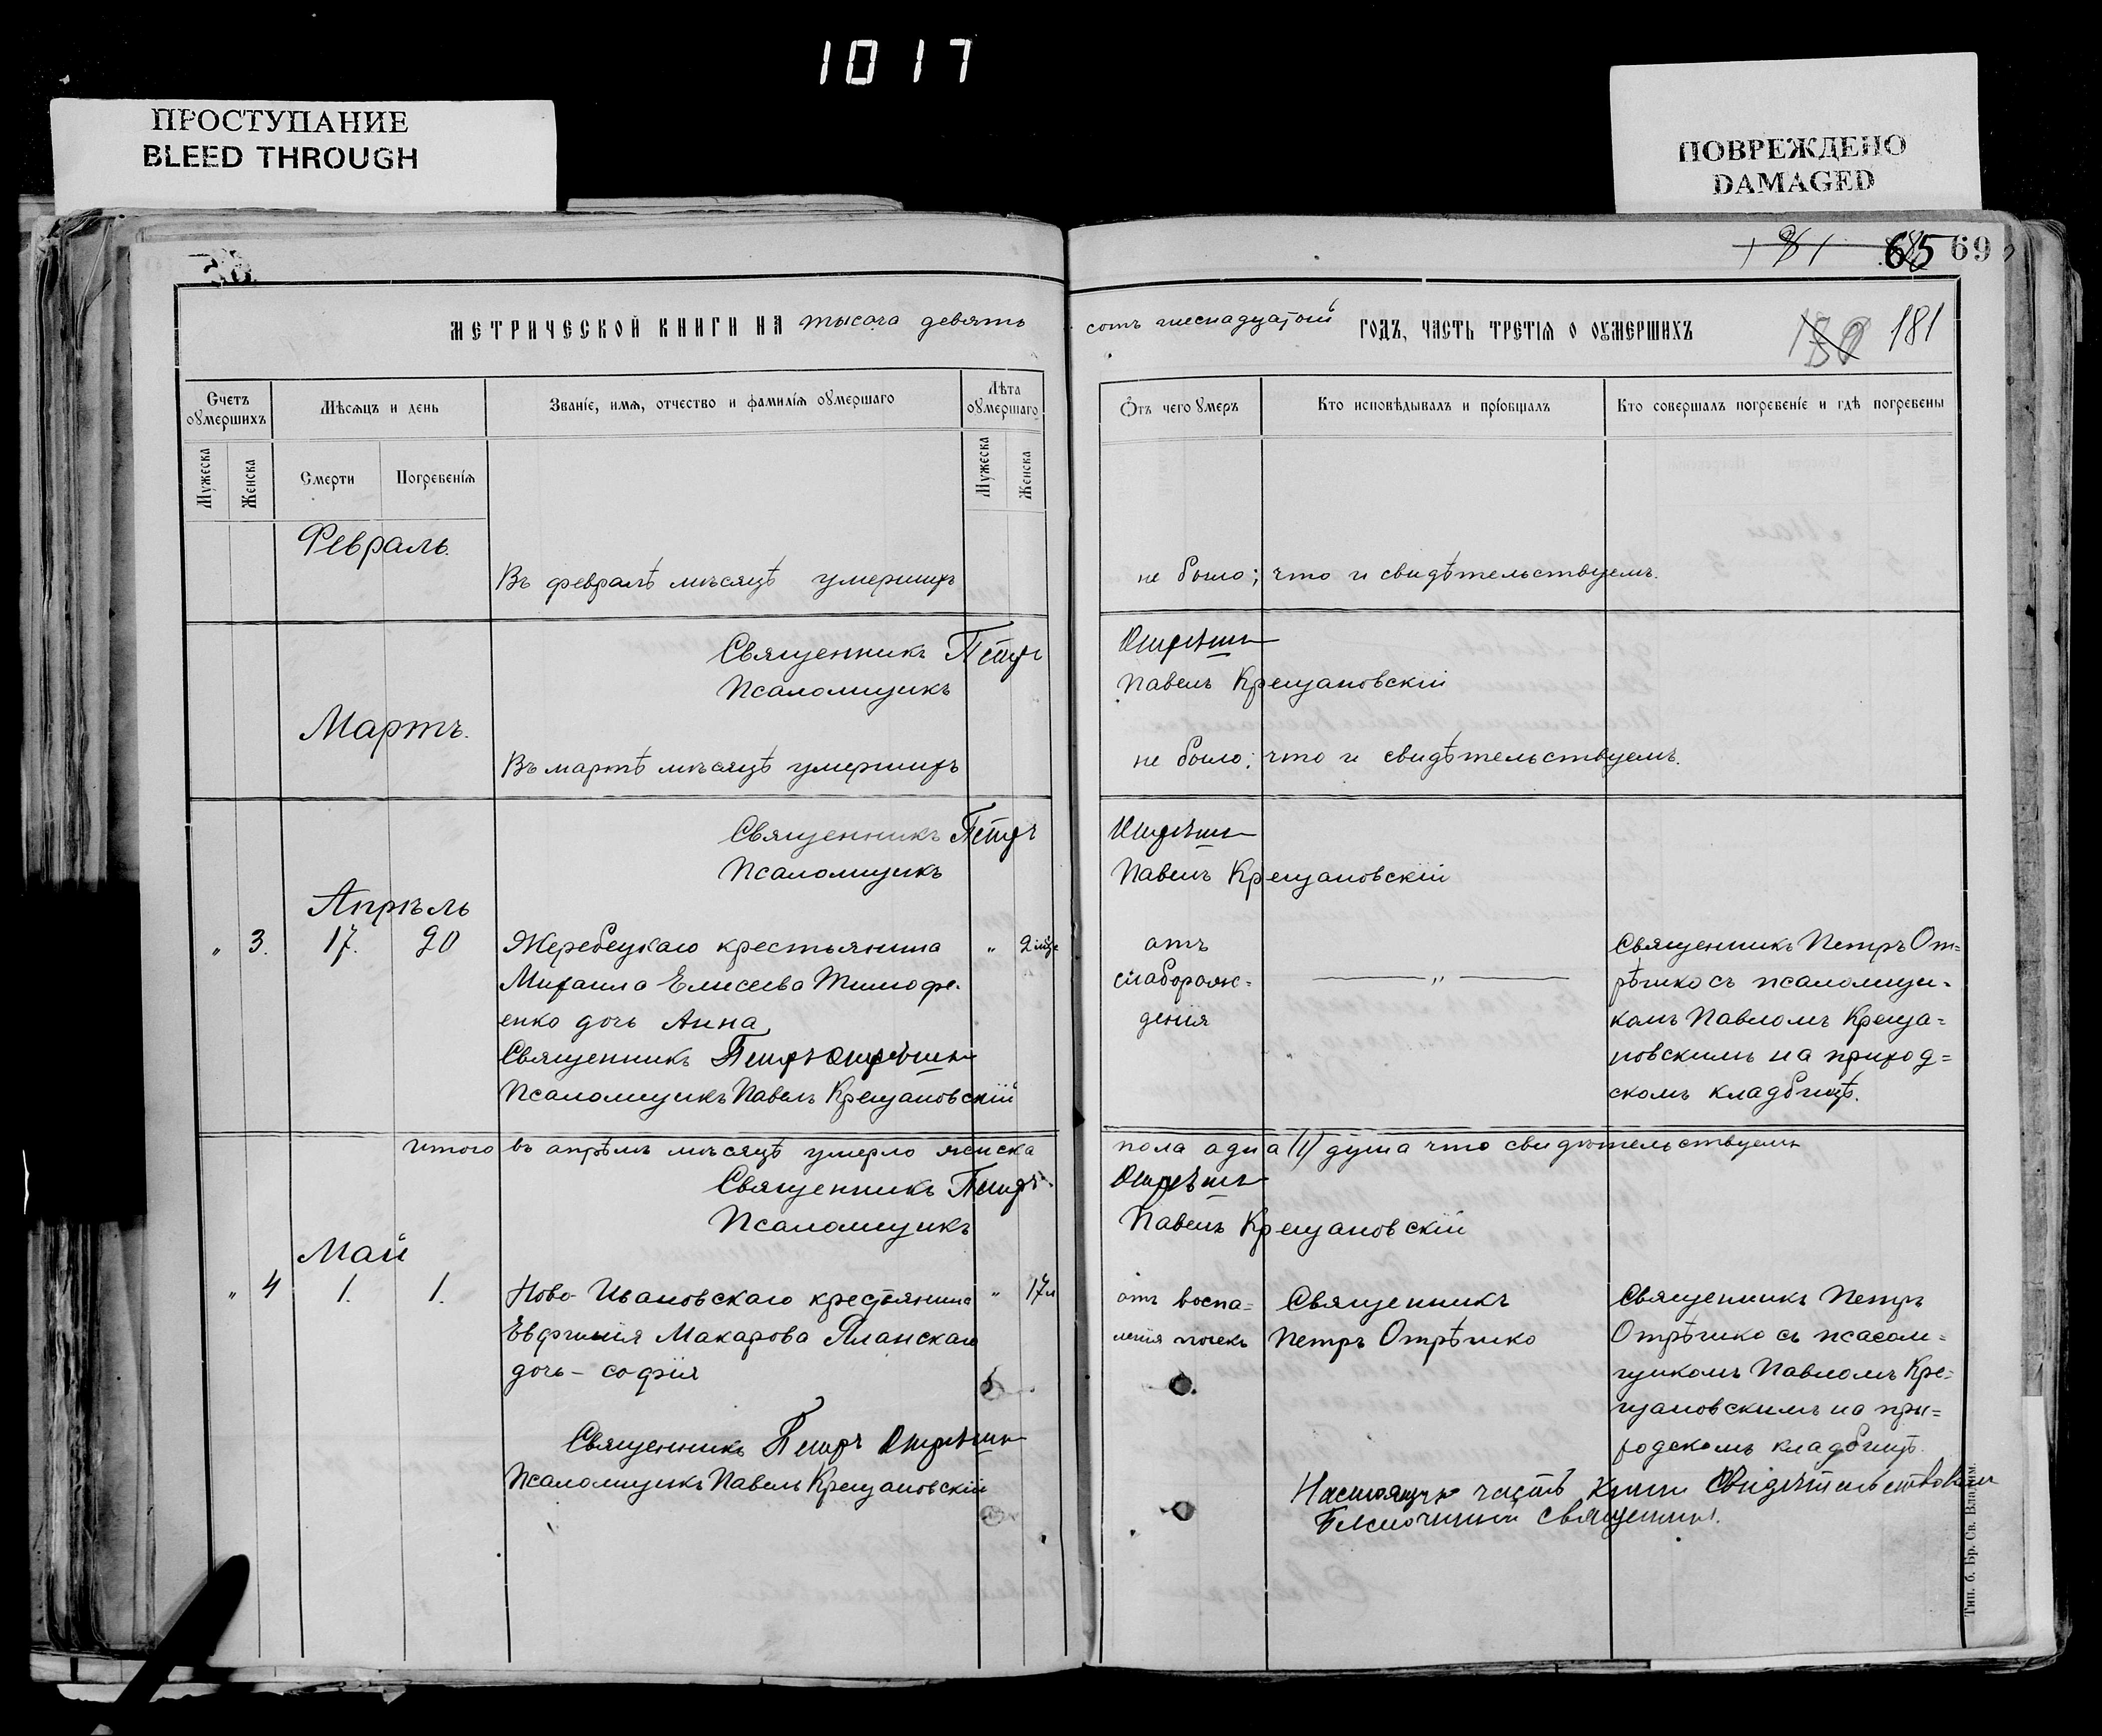 1017
ПРОСТУПАНИЕ
BLEED THROUGH
ПОВРЕЖДЕНО
DAMAGED
65 69
МЕТРИЧЕСКОЙ КНИГИ НА тысяча девять
сотъ шестнадцатый ГОДЪ, ЧАСТЬ ТРЕТІЯ О ОУМЕРШИХЪ
181
Счетъ оумершихъ
Мѣсяцъ и день
Званіе, имя, отчество и фамилія оумершаго
Лѣта оумершаго
Мужеска
Женска
Смерти
Погребенія
Мужеска
Женска
Отъ чего умеръ
Кто исповѣдывалъ и пріобщалъ
Кто совершалъ погребеніе и гдѣ погребены
Февраль.
Въ февралѣ мѣсяцѣ умершихъ
не было; что и свидѣтельствуемъ.
Священникъ Петръ
Отрѣшко
Псаломщикъ
Павелъ Крещановскій
Мартъ.
Въ мартѣ мѣсяцѣ умершихъ
не было; что и свидѣтельствуемъ.
Священникъ Петръ
Отрѣшко
Псаломщикъ
Павелъ Крещановскій
Апрѣль
„ 3. 17. 20
Жеребецкаго крестьянина
Михаила Елисеева Тимофе-
енко дочь Анна
Священникъ Петръ Отрѣшко
Псаломщикъ Павелъ Крещановскій
„ 2 мѣс
отъ
слаборож-
денія
„
Священникъ Петръ От=
рѣшко съ псаломщи-
комъ Павломъ Креща=
новскимъ на приход=
скомъ кладбищѣ.
итого въ апрѣлѣ мѣсяцѣ умерло женска
пола одна (1) душа что свидѣтельствуемъ
Священникъ Петръ
Отрѣшко
Псаломщикъ
Павелъ Крещановскій
Май
„ 4 1. 1.
Ново-Ивановскаго крестьянина
Евфимія Макарова Планскаго
дочь - софія
Священникъ Петръ Отрѣшко
Псаломщикъ Павелъ Крещановскій
„ 17 л
отъ воспа=
ленія почекъ
Священникъ
Петръ Отрѣшко
Священникъ Петръ
Отрѣшко съ псалом=
щикомъ Павломъ Кре=
щановскимъ на при=
ходскомъ кладбищѣ.
Настоящую часть книги свидѣтельствовалъ
Благочинный священникъ.
Тип. б. Бр. Св. Владим.